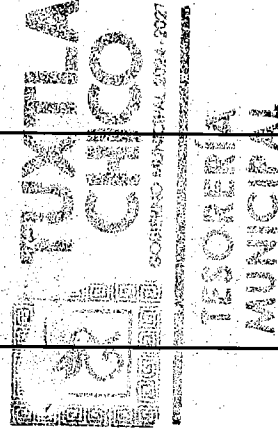 TUXTLA
CHICO
GOBIERNO MUNICIPAL 2024 - 2027
TESORERÍA
MUNICIPAL